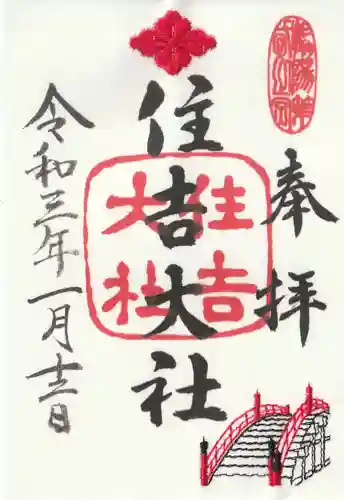 奉拝
住吉大社
令和三年一月十三日
住吉
大社